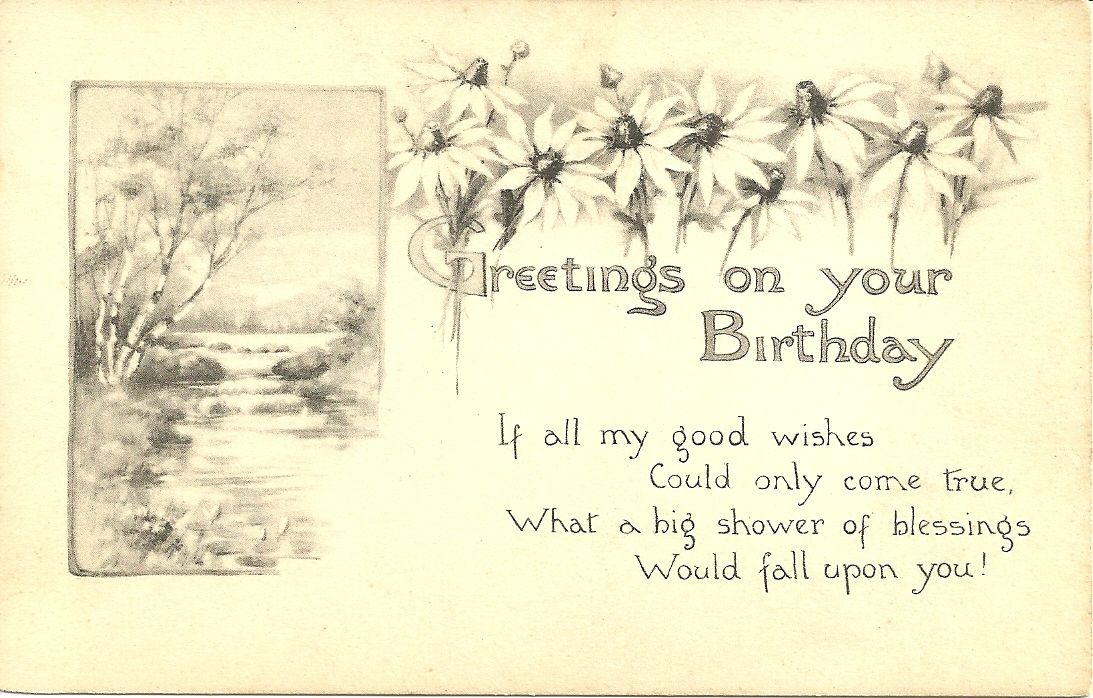 Greetings on your
Birthday
If all my good wishes
Could only come true,
What a big shower of blessings
Would fall upon you!